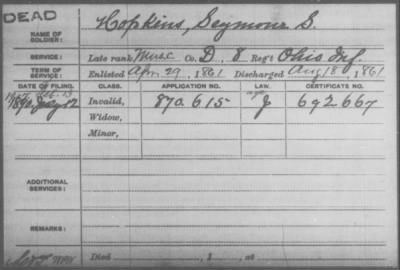 DEAD
NAME OF SOLDIER: Hopkins, Seymour S.
SERVICE: Late rank Musc Co. D, 8 Reg't Ohio Inf.
TERM OF SERVICE: Enlisted Apr. 29, 1861 Discharged Aug 18, 1861
DATE OF FILING. CLASS. APPLICATION NO. LAW. CERTIFICATE NO.
1890, July 12 Invalid, 870.615 J 692667
Widow,
Minor,
ADDITIONAL SERVICES:
REMARKS:
Died , 1 , at